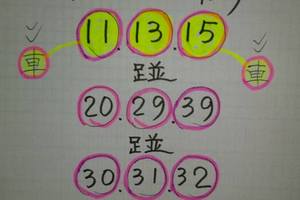 車 11.13.15 車
碰
20.29.39
碰
30.31.32